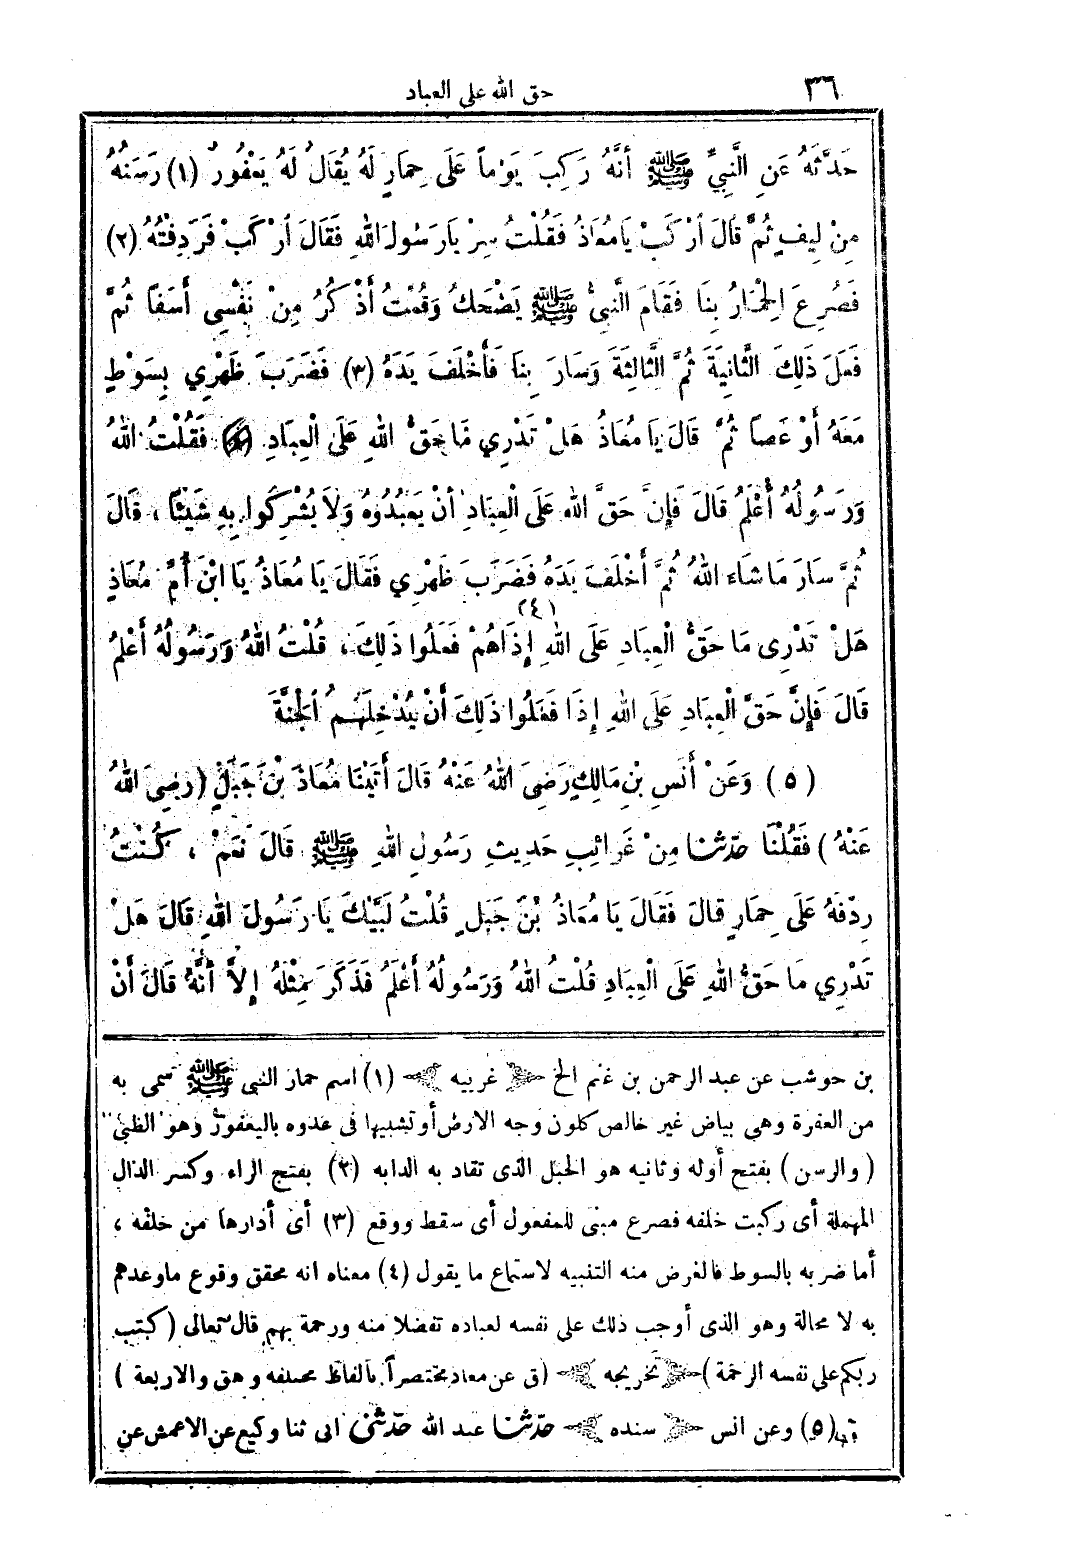 حق الله على العباد ٣٦
حَدَّثَهُ عَنِ النَّبِيِّ ﷺ أَنَّهُ رَكِبَ يَوْماً عَلَى حِمَارٍ لَهُ يُقَالُ لَهُ يَعْفُورُ (١) رَسَنُهُ
مِنْ لِيفٍ ثُمَّ قَالَ ارْكَبْ يَا مُعَاذُ فَقُلْتُ سِرْ يَا رَسُولَ اللهِ فَقَالَ ارْكَبْ فَرَدِفْتُهُ (٢)
فَصُرِعَ الْحِمَارُ بِنَا فَقَامَ النَّبِيُّ ﷺ يَضْحَكُ وَقُمْتُ أَذْكُرُ مِنْ نَفْسِي أَسَفًا ثُمَّ
فَعَلَ ذَلِكَ الثَّانِيَةَ ثُمَّ الثَّالِثَةَ وَسَارَ بِنَا فَأَخْلَفَ يَدَهُ (٣) فَضَرَبَ ظَهْرِي بِسَوْطٍ
مَعَهُ أَوْ عَصاً ثُمَّ قَالَ يَا مُعَاذُ هَلْ تَدْرِي مَا حَقُّ اللهِ عَلَى الْعِبَادِ فَقُلْتُ اللهُ
وَرَسُولُهُ أَعْلَمُ قَالَ فَإِنَّ حَقَّ اللهِ عَلَى الْعِبَادِ أَنْ يَعْبُدُوهُ وَلَا يُشْرِكُوا بِهِ شَيْئًا ، قَالَ
ثُمَّ سَارَ مَا شَاءَ اللهُ ثُمَّ أَخْلَفَ يَدَهُ فَضَرَبَ ظَهْرِي فَقَالَ يَا مُعَاذُ يَا ابْنَ أُمِّ مُعَاذٍ
هَلْ تَدْرِى مَا حَقُّ الْعِبَادِ عَلَى اللهِ إِذَا هُمْ فَعَلُوا ذَلِكَ (٤) ، قُلْتُ اللهُ وَرَسُولُهُ أَعْلَمُ
قَالَ فَإِنَّ حَقَّ الْعِبَادِ عَلَى اللهِ إِذَا فَعَلُوا ذَلِكَ أَنْ يُدْخِلَهُمُ الْجَنَّةَ
(٥) وَعَنْ أَنَسِ بْنِ مَالِكٍ رَضِيَ اللهُ عَنْهُ قَالَ أَتَيْنَا مُعَاذَ بْنَ جَبَلٍ (رَضِيَ اللهُ
عَنْهُ) فَقُلْنَا حَدِّثْنَا مِنْ غَرَائِبِ حَدِيثِ رَسُولِ اللهِ ﷺ قَالَ نَعَمْ ، كُنْتُ
رِدْفَهُ عَلَى حِمَارٍ قَالَ فَقَالَ يَا مُعَاذُ بْنَ جَبَلٍ قُلْتُ لَبَّيْكَ يَا رَسُولَ اللهِ قَالَ هَلْ
تَدْرِي مَا حَقُّ اللهِ عَلَى الْعِبَادِ قُلْتُ اللهُ وَرَسُولُهُ أَعْلَمُ فَذَكَرَ مِثْلَهُ إِلاَّ أَنَّهُ قَالَ أَنْ
بن حوشب عن عبد الرحمن بن غنم الخ ﴿غريبه﴾ (١) اسم حمار النبي ﷺ سمى به
من العفرة وهي بياض غير خالص كلون وجه الارض أو تشبيها فى عدوه باليعفور وهو الظبي
(والرسن) بفتح أوله وثانيه هو الحبل الذى تقاد به الدابه (٢) بفتح الراء وكسر الدال
المهملة أى ركبت خلفه فصرع مبنى للمفعول أى سقط ووقع (٣) أى أدارها من خلفه ،
أما ضربه بالسوط فالغرض منه التنبيه لاستماع ما يقول (٤) معناه انه محقق وقوع ماوعدهم
به لا محالة وهو الذى أوجب ذلك على نفسه لعباده تفضلا منه ورحمة بهم قال تعالى (كتب
ربكم على نفسه الرحمة) ﴿تخريجه﴾ (ق عن معاذ مختصراً بألفاظ مختلفه وهق والاربعة)
(٥) وعن انس ﴿سنده﴾ حدّثنا عبد الله حدّثنى ابى ثنا وكيع عن الاعمش عن